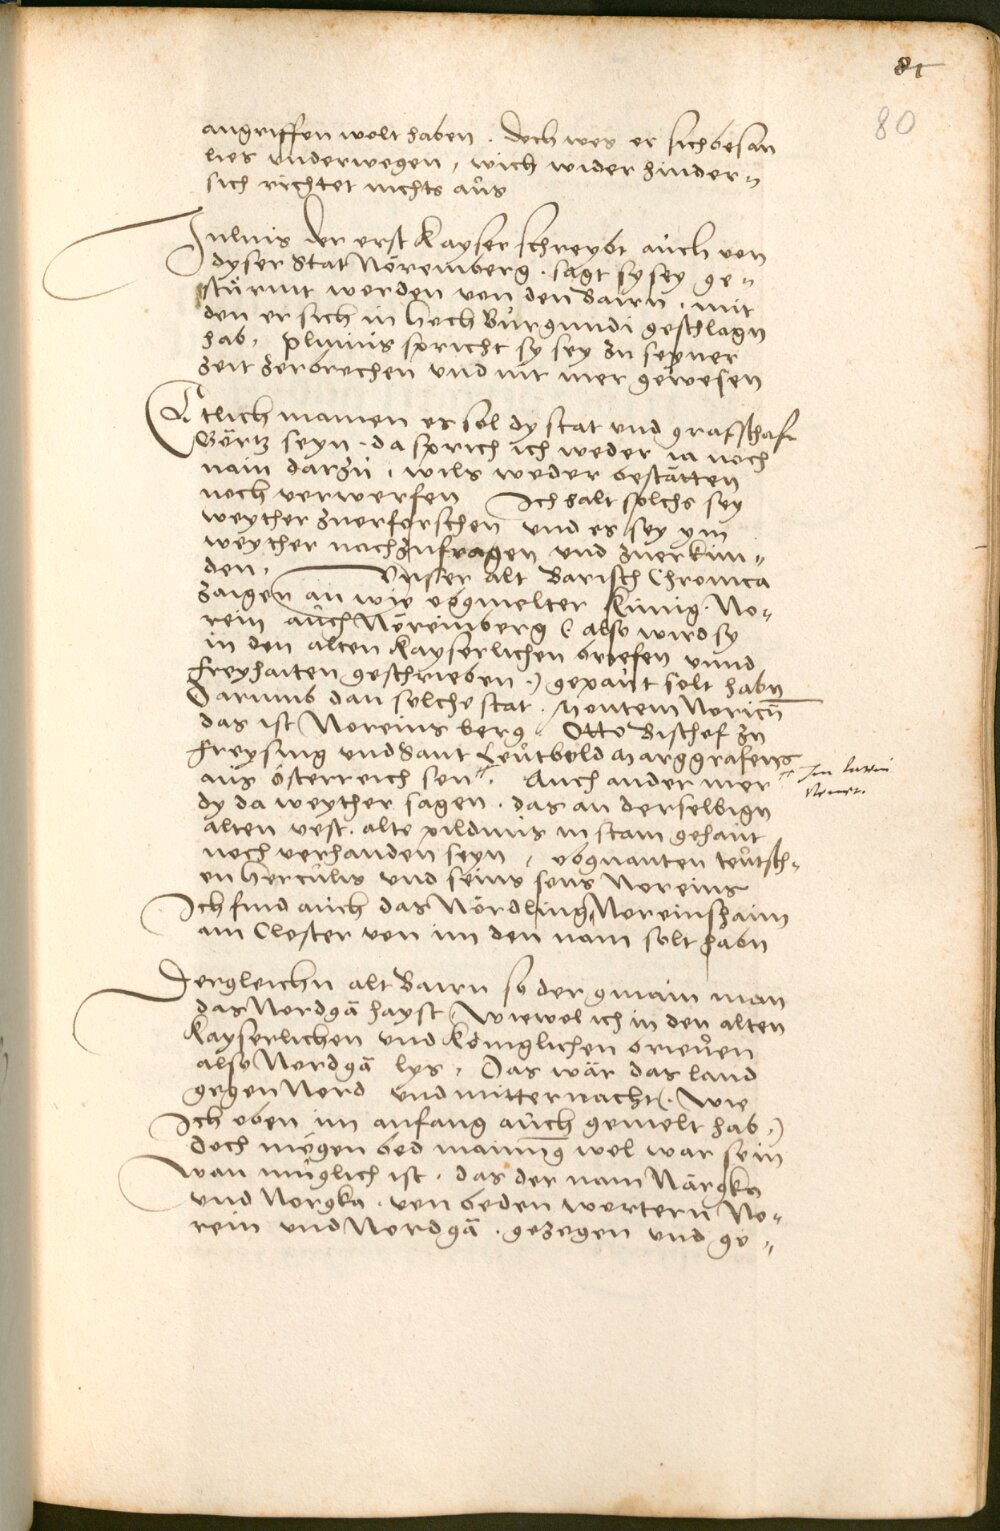 81
80
angriffen wolt haben . doch wes er sich besan
lies underwegen , wich wider hinder=
sich richtet nichts aůs
Julius der erst Kayser schreybt aůch von
dyser Stat Nöremberg . sagt sy sey ge=
stürmt worden von den Bairn , mit
den er sich in hoch Bůrgundi geschlagn
hab , plinius spricht sy sey zu seyner
zeit zerbrochen und nit mer gewesen
Etlich mainen es sol dy stat und grafschaft
Görtz seyn . da sprich ich weder ia noch
nain darzů , wils weder bestätten
noch verwerfen Ich halt solchs sey
weyther zuerforschen und es sey ym
weyther nachzufragen und zuerkün=
den , Unser alt Barisch Chronica
zaigen an wie obgmelter Künig No=
rein aůch Nöreinberg ( also wird sy
in den alten Kayserlichen briefen unnd
freyhaiten geschrieben .) gepaut solt habn
Darumb dan solche stat . Montem Noricũ
das ist Noreins berg . Otto Bischof zu
freysing und Sant Leůtbold Marggrafens
aůs österreich son . Auch ander mer
In latin
dy da weyther sagen . das an derselbign
alten vest . alte pildnus in stain gehaut
noch verhanden seyn , obgnanten teůtsch=
en Hercůlis und seins sons Noreins
Ich find aůch das Nördling Noreinshaim
ain Closter von im den nam solt habn
Dergleichn alt Bairn so der gmain man
das Nordgã hayst Wiewol ich in den alten
Kayserlichen und Königlichen brieůen
also Nordgã lys , Das wär das land
gegen Nord und mitternacht (. Wie
Ich oben im anfang aůch gemelt hab .)
doch mögen bed mainũg wol war sein
wan müglich ist . das der nam Närgka
und Norgka . von beden wortern No=
rein und Nordgã . gezogen und ge=